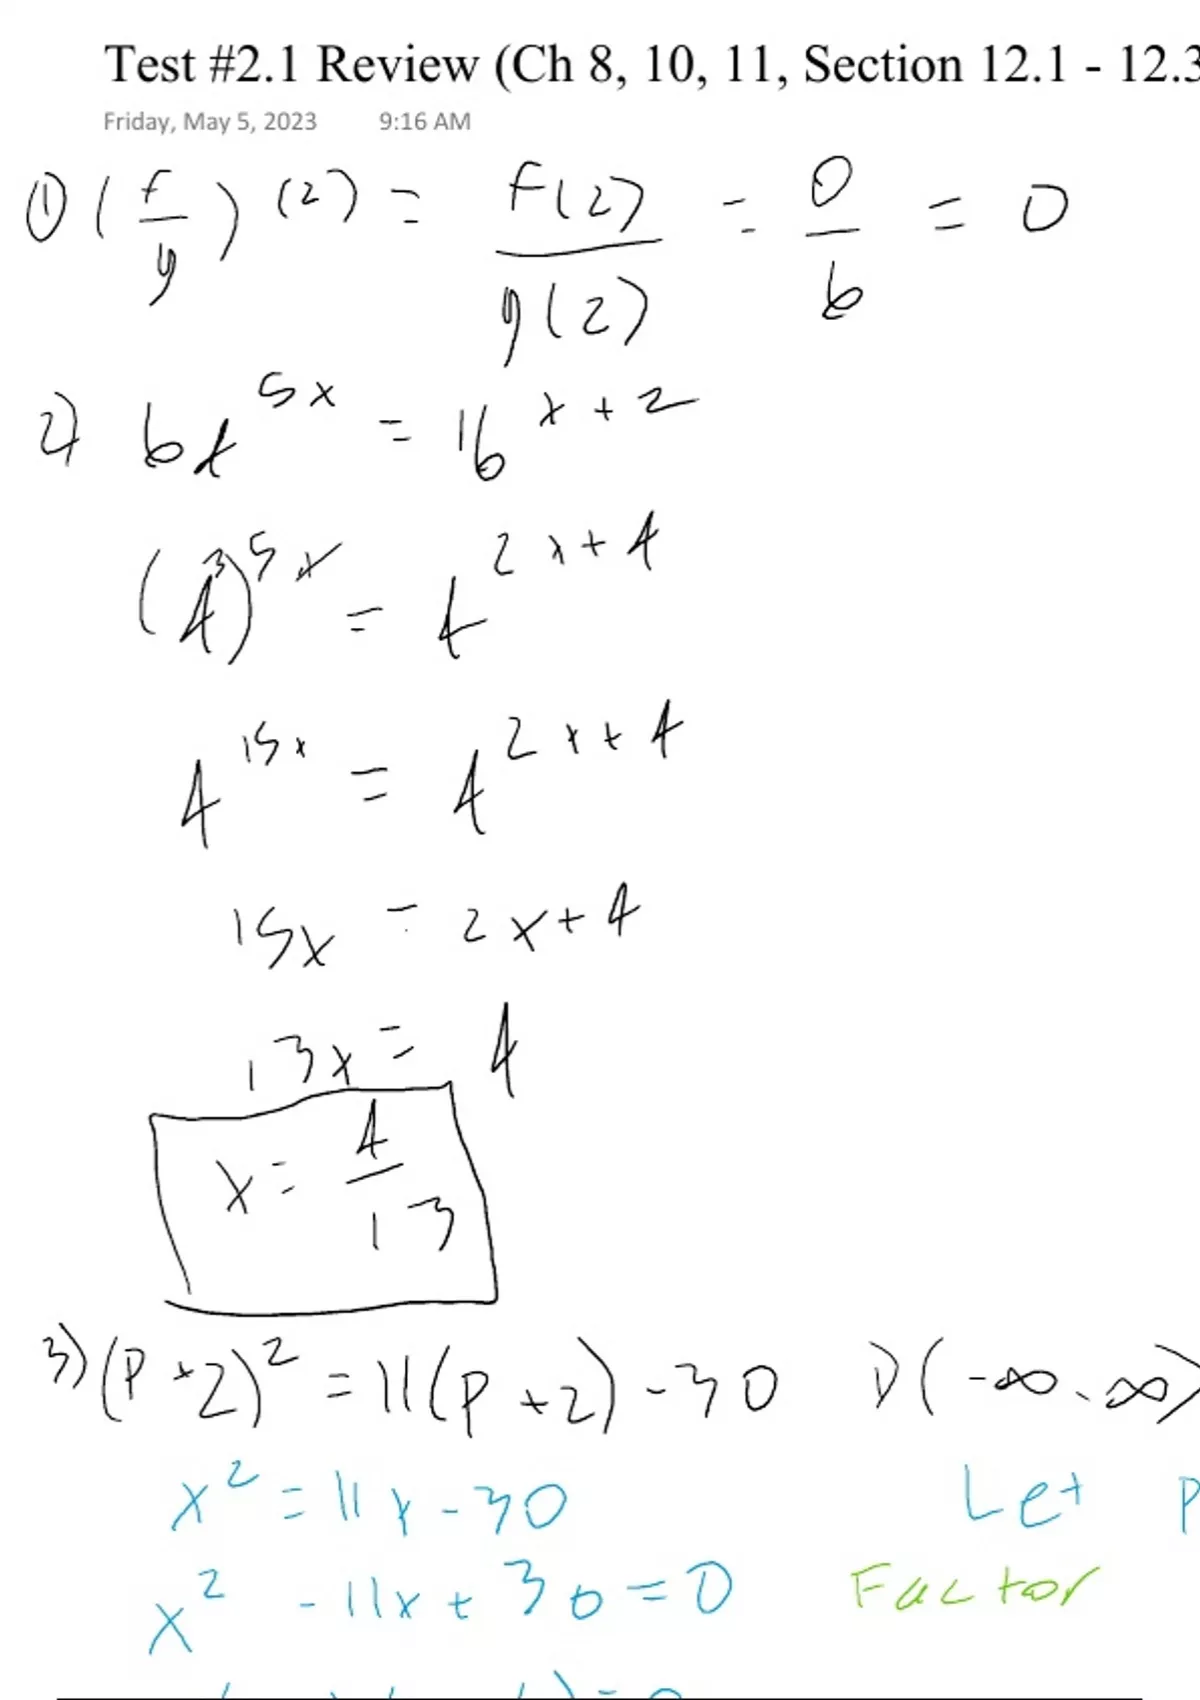 Test #2.1 Review (Ch 8, 10, 11, Section 12.1 - 12.3
Friday, May 5, 2023 9:16 AM
① (f/g)(2) = f(2)/g(2) = 0/6 = 0
2) 64^5x = 16^x+2
(4^3)^5x = 4^2x+4
4^15x = 4^2x+4
15x = 2x+4
13x = 4
x = 4/13
3) (p+2)^2 = 11(p+2) - 30 D(-∞, ∞)
x^2 = 11x - 30 Let p
x^2 - 11x + 30 = 0 Factor